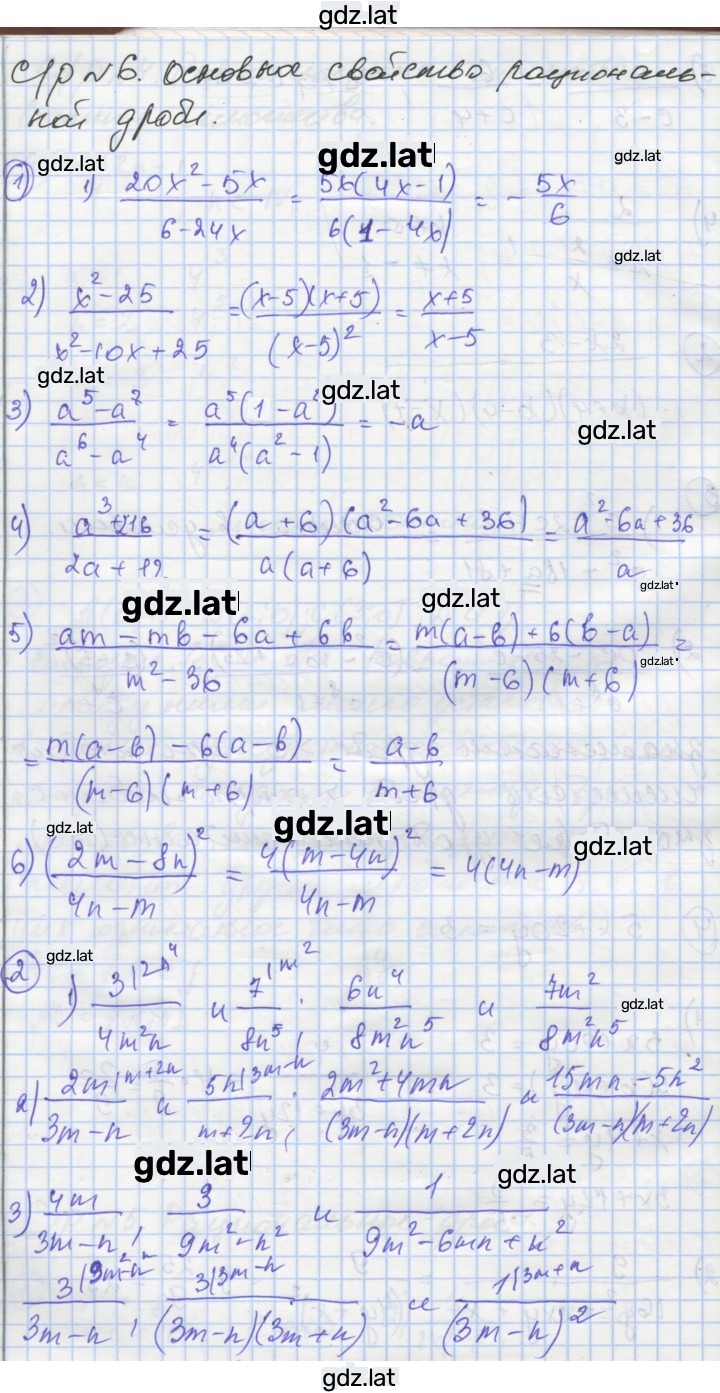 gdz.lat
С/р №6. Основна свойство рациональ-
ной дроби.
gdz.lat gdz.lat
① 1) (20x² - 5x)/(6 - 24x) = 5x(4x - 1)/6(1 - 4x) = - 5x/6
gdz.lat
2) (x² - 25)/(x² - 10x + 25) = (x - 5)(x + 5)/(x - 5)² = (x + 5)/(x - 5)
gdz.lat gdz.lat
3) (a⁵ - a⁷)/(a⁶ - a⁴) = a⁵(1 - a²)/a⁴(a² - 1) = - a
gdz.lat
4) (a³ + 216)/(2a + 12) = (a + 6)(a² - 6a + 36)/a(a + 6) = (a² - 6a + 36)/a
gdz.lat
gdz.lat gdz.lat
5) (am - mb - 6a + 6b)/(m² - 36) = (m(a - b) + 6(b - a))/(m - 6)(m + 6) =
gdz.lat
= (m(a - b) - 6(a - b))/(m - 6)(m + 6) = (a - b)/(m + 6)
gdz.lat gdz.lat gdz.lat
6) (2m - 8n)²/(4n - m) = 4(m - 4n)²/(4n - m) = 4(4n - m)
gdz.lat
② 1) 3|2n⁴/4m²n и 7|m²/8n⁵; 6n⁴/8m²n⁵ и 7m²/8m²n⁵
gdz.lat
2) 2m|m+2n/(3m - n) и 5n|3m-n/(m + 2n); (2m² + 4mn)/(3m - n)(m + 2n) и (15mn - 5n²)/(3m - n)(m + 2n)
gdz.lat gdz.lat
3) 4m/(3m - n); 3/(9m² - n²) и 1/(9m² - 6mn + n²)
3|9m²-n²/(3m - n); 3|3m-n/(3m - n)(3m + n) и 1|3m+n/(3m - n)²
gdz.lat